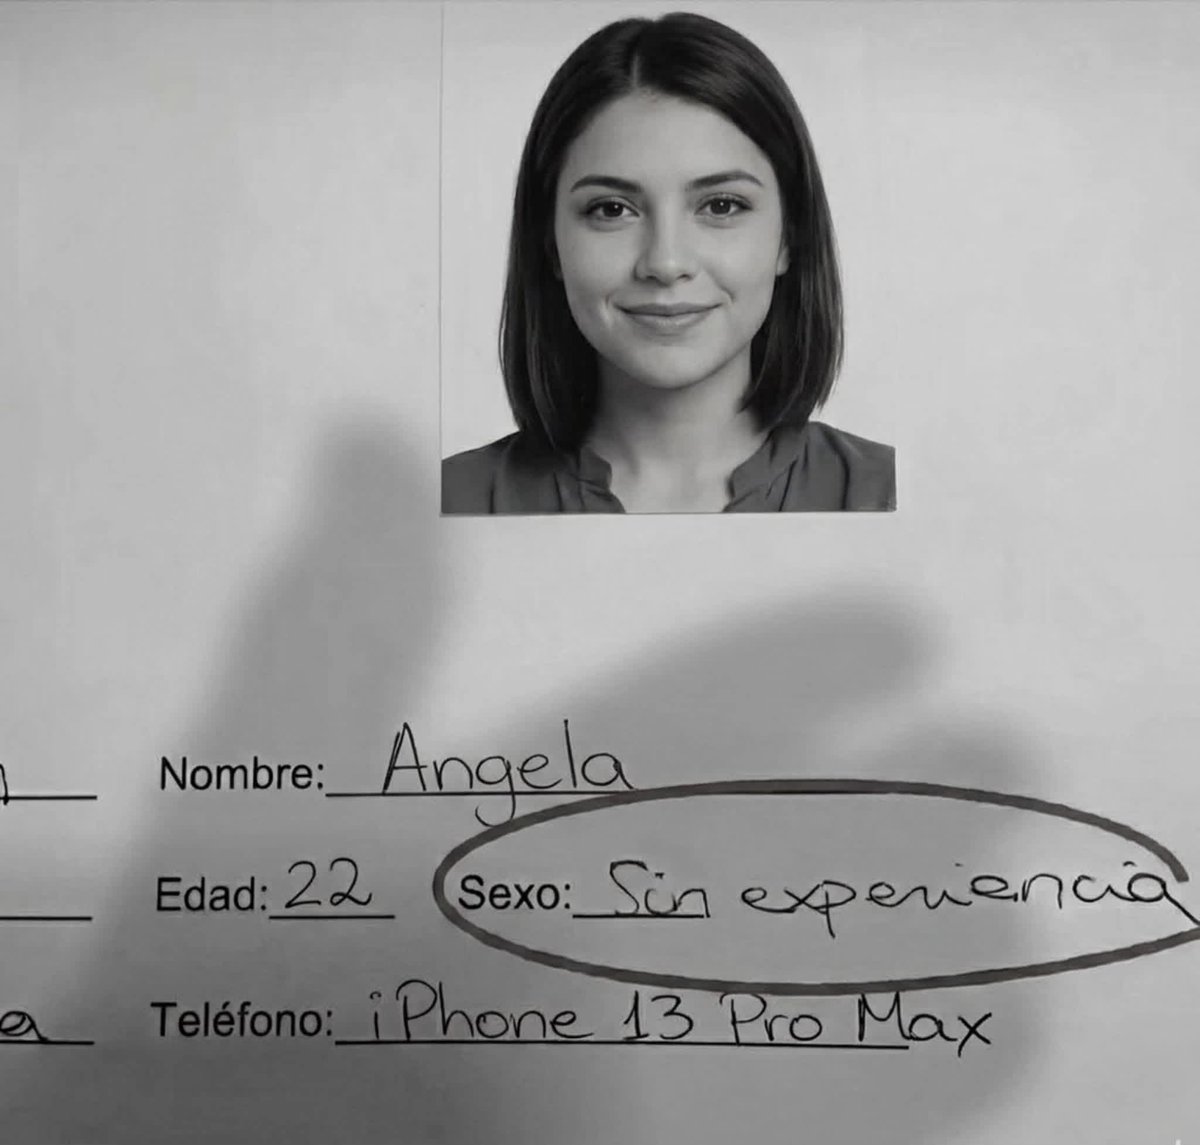 Nombre: Angela
Edad: 22 Sexo: Sin experiencia
a Teléfono: iPhone 13 Pro Max